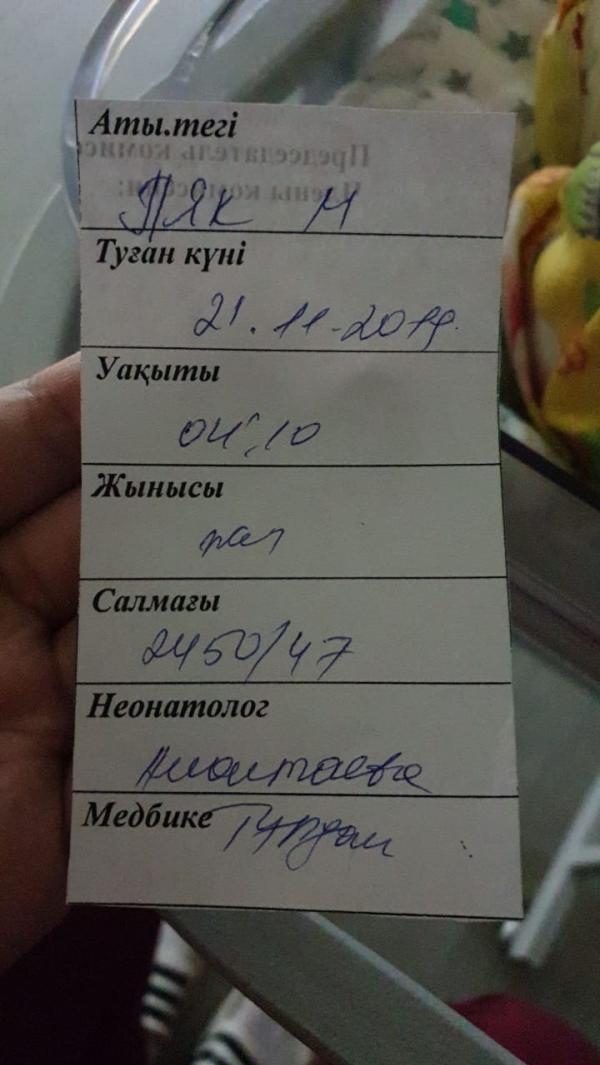 Аты.тегі
Председатель комисс
Члены комиссии:
ПЯК М
Туған күні
21.11.2019.
Уақыты
04:10
Жынысы
Салмағы
2450/47
Неонатолог
Медбике